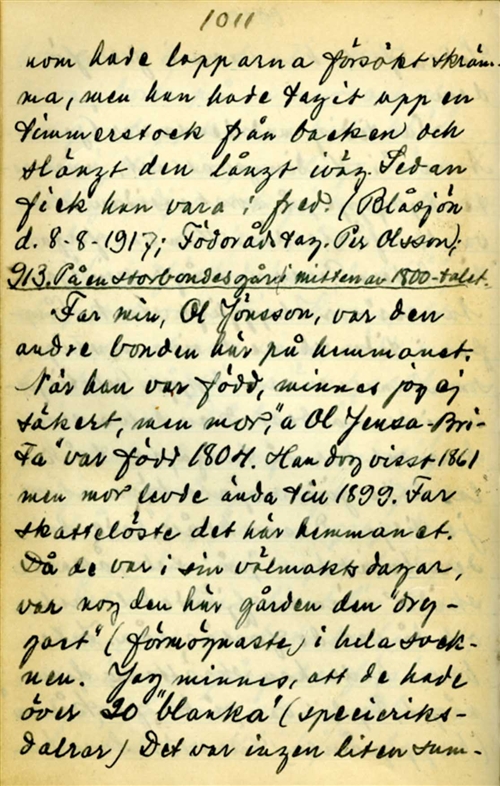 1011
nom hade lapparna försökt skräm-
ma, men han hade tagit upp en
timmerstock från backen och
slängt den långt iväg. Sedan
fick han vara i fred. (Blåsjön
d. 8-8-1917; Födorådstag. Per Olsson);
913. På en storbondesgård i mitten av 1800-talet.
Far min, Ol Jönsson, var den
andre bonden här på hemmanet.
När han var född, minnes jag ej
säkert, men mor, "a Ol Jensa-Bri-
ta" var född 1804. Han dog visst 1861
men mor levde ända till 1899. Far
skattelöste det här hemmanet.
Då de var i sin välmakts dagar,
var nog den här gården den "dry-
gast" (förmögnaste) i hela sock-
nen. Jag minnes, att de hade
över 20 "blanka" (specieriks-
dalrar) Det var ingen liten sum-